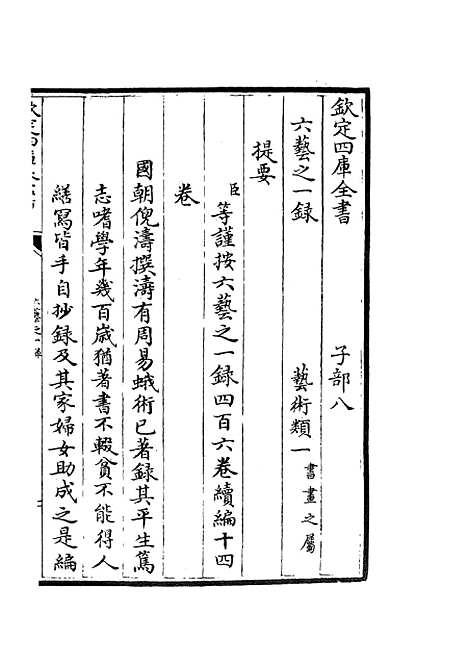 欽定四庫全書 子部八
六藝之一録 藝術類一 書畫之屬
提要
臣等謹按六藝之一録四百六卷續編十四
卷
國朝倪濤撰濤有周易蛾術已著録其平生篤
志嗜學年幾百歲猶著書不輟貧不能得人
繕寫皆手自抄録及其家婦女助成之是編
六藝之一録